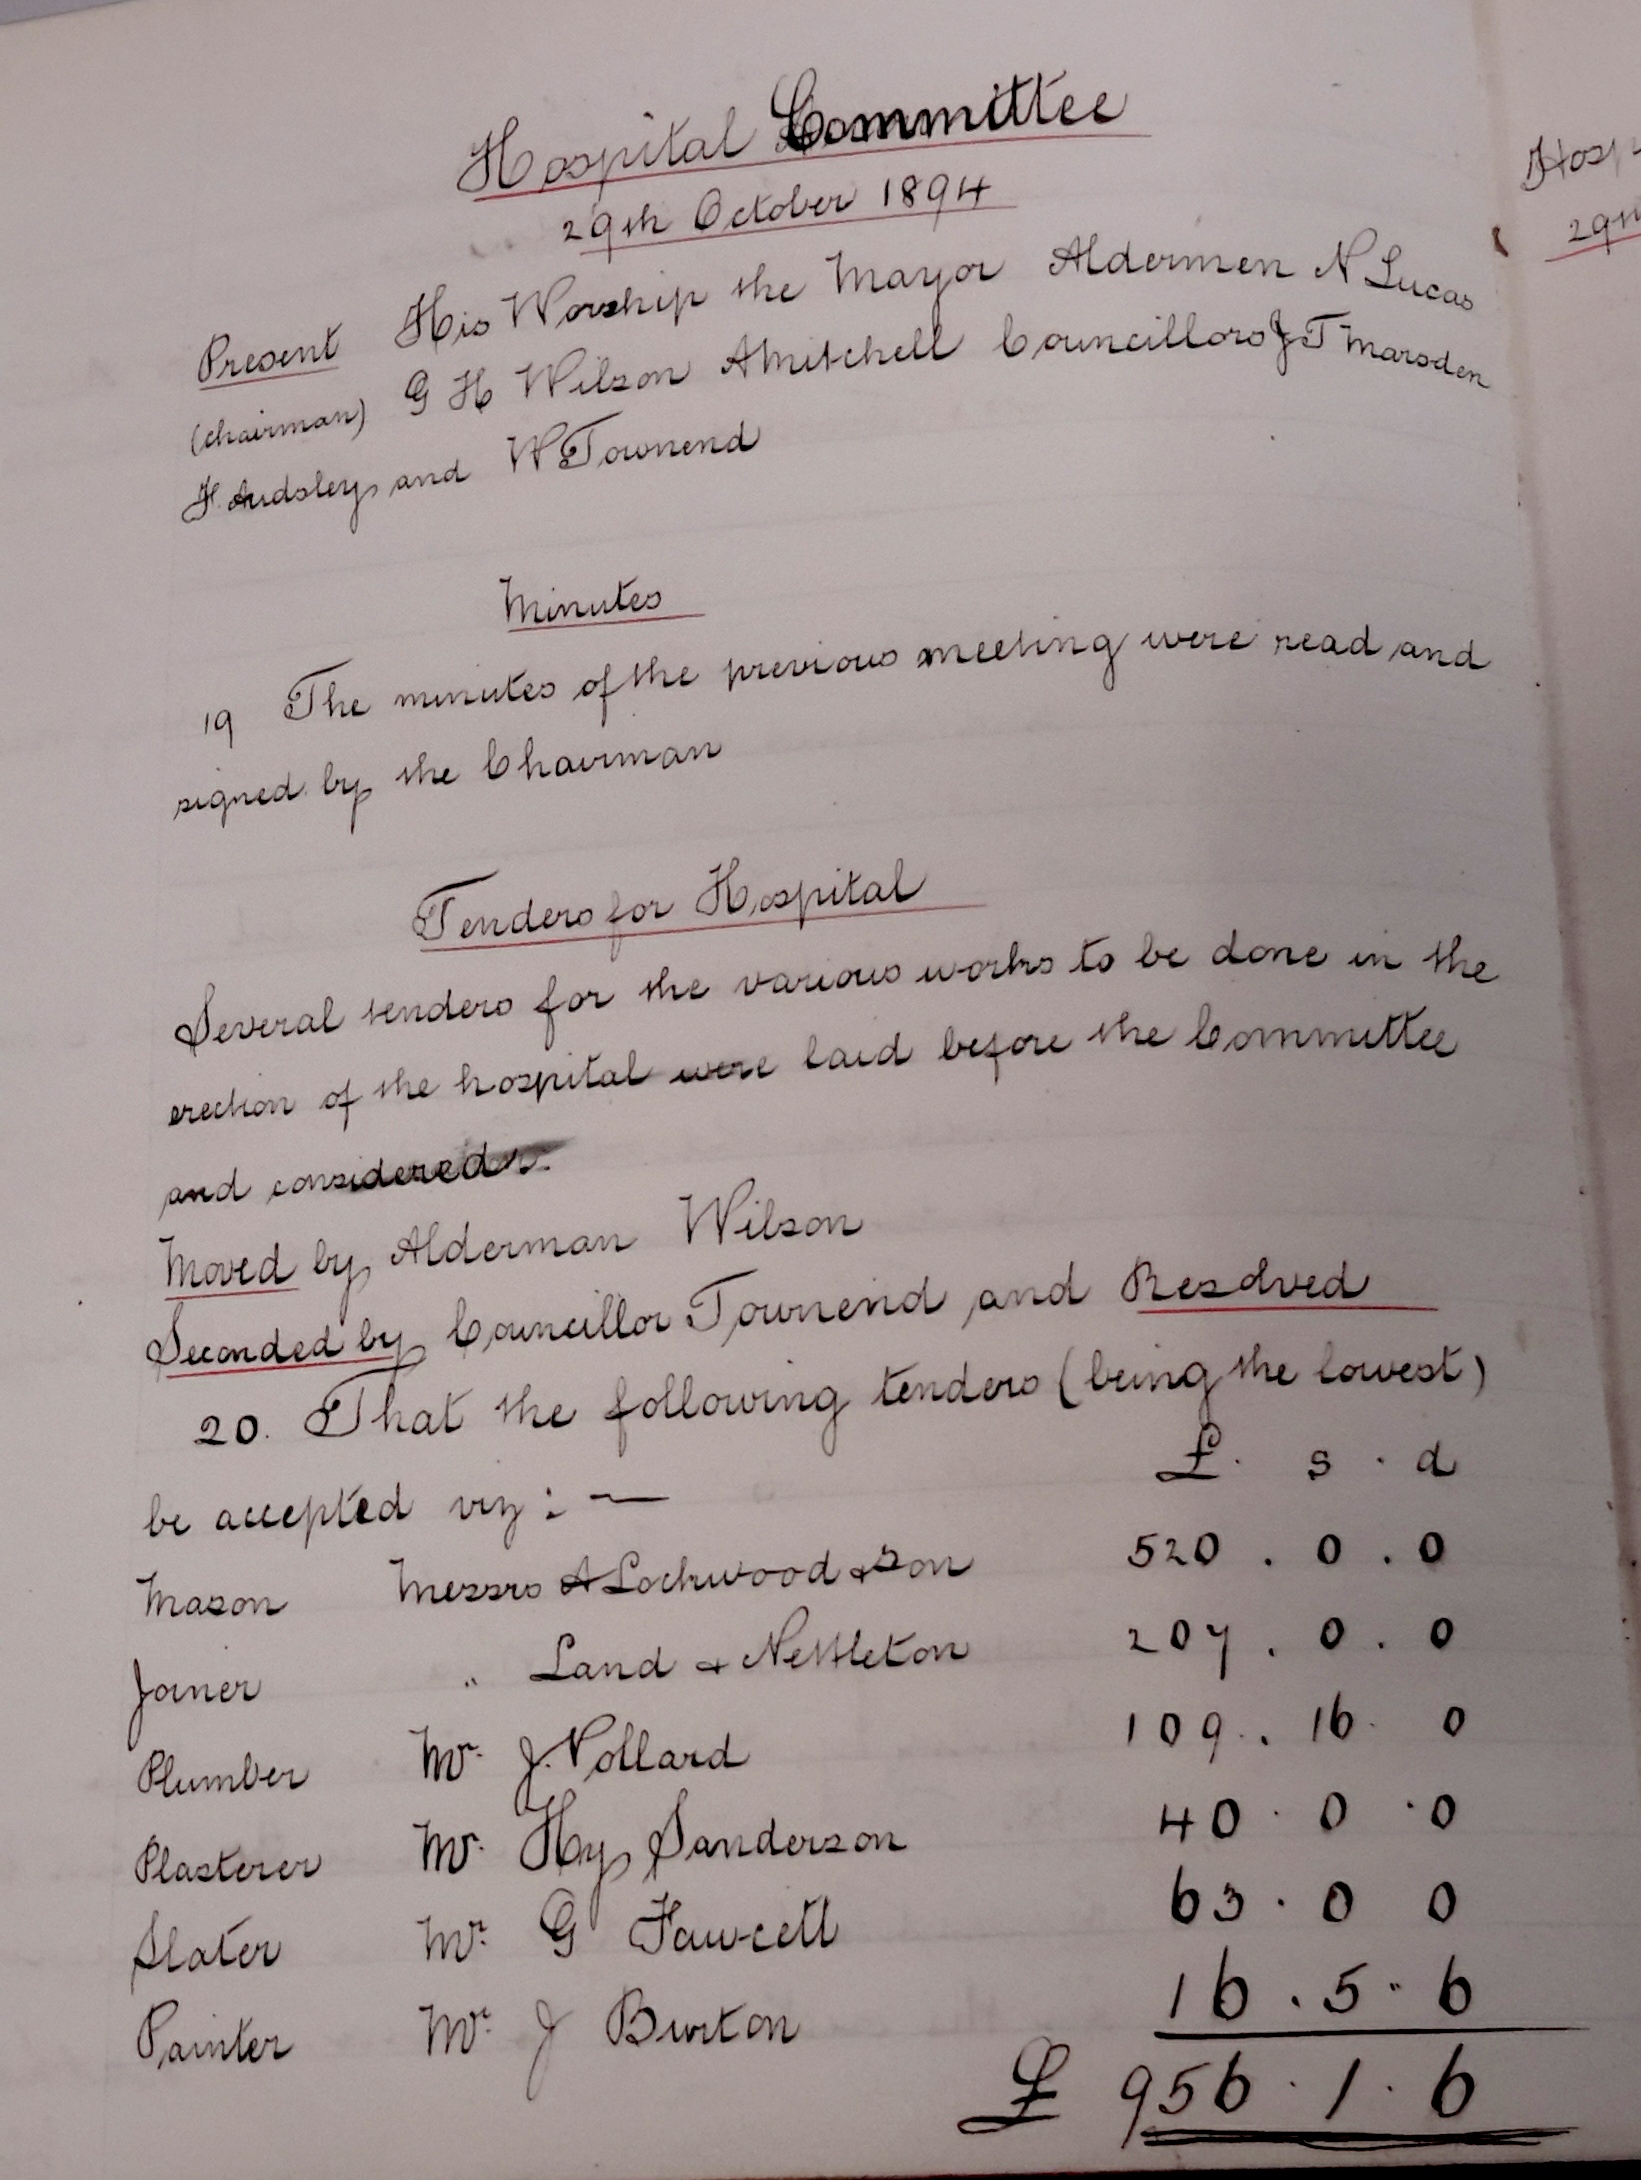 Hospital Committee
29th October 1894
Present His Worship the Mayor Aldermen N Lucas
(chairman) G H Wilson A Mitchell Councillors J T Marsden
F. Audsley and W Townend
Minutes
19 The minutes of the previous meeting were read and
signed by the Chairman
Tenders for Hospital
Several tenders for the various works to be done in the
erection of the hospital were laid before the Committee
and considered
Moved by Alderman Wilson
Seconded by Councillor Townend and Resolved
20. That the following tenders (being the lowest)
£. s. d
be accepted viz : —
Mason Messrs A Lockwood & Son 520 . 0 . 0
Joiner " Land & Nettleton 207 . 0 . 0
Plumber Mr. J. Pollard 109 . 16. 0
Plasterer Mr. Hy Sanderson 40 . 0 . 0
Slater Mr. G Fawcett 63 . 0 0
Painter Mr. J Burton 16 . 5 . 6
£ 956 . 1 . 6
Hosp
29th